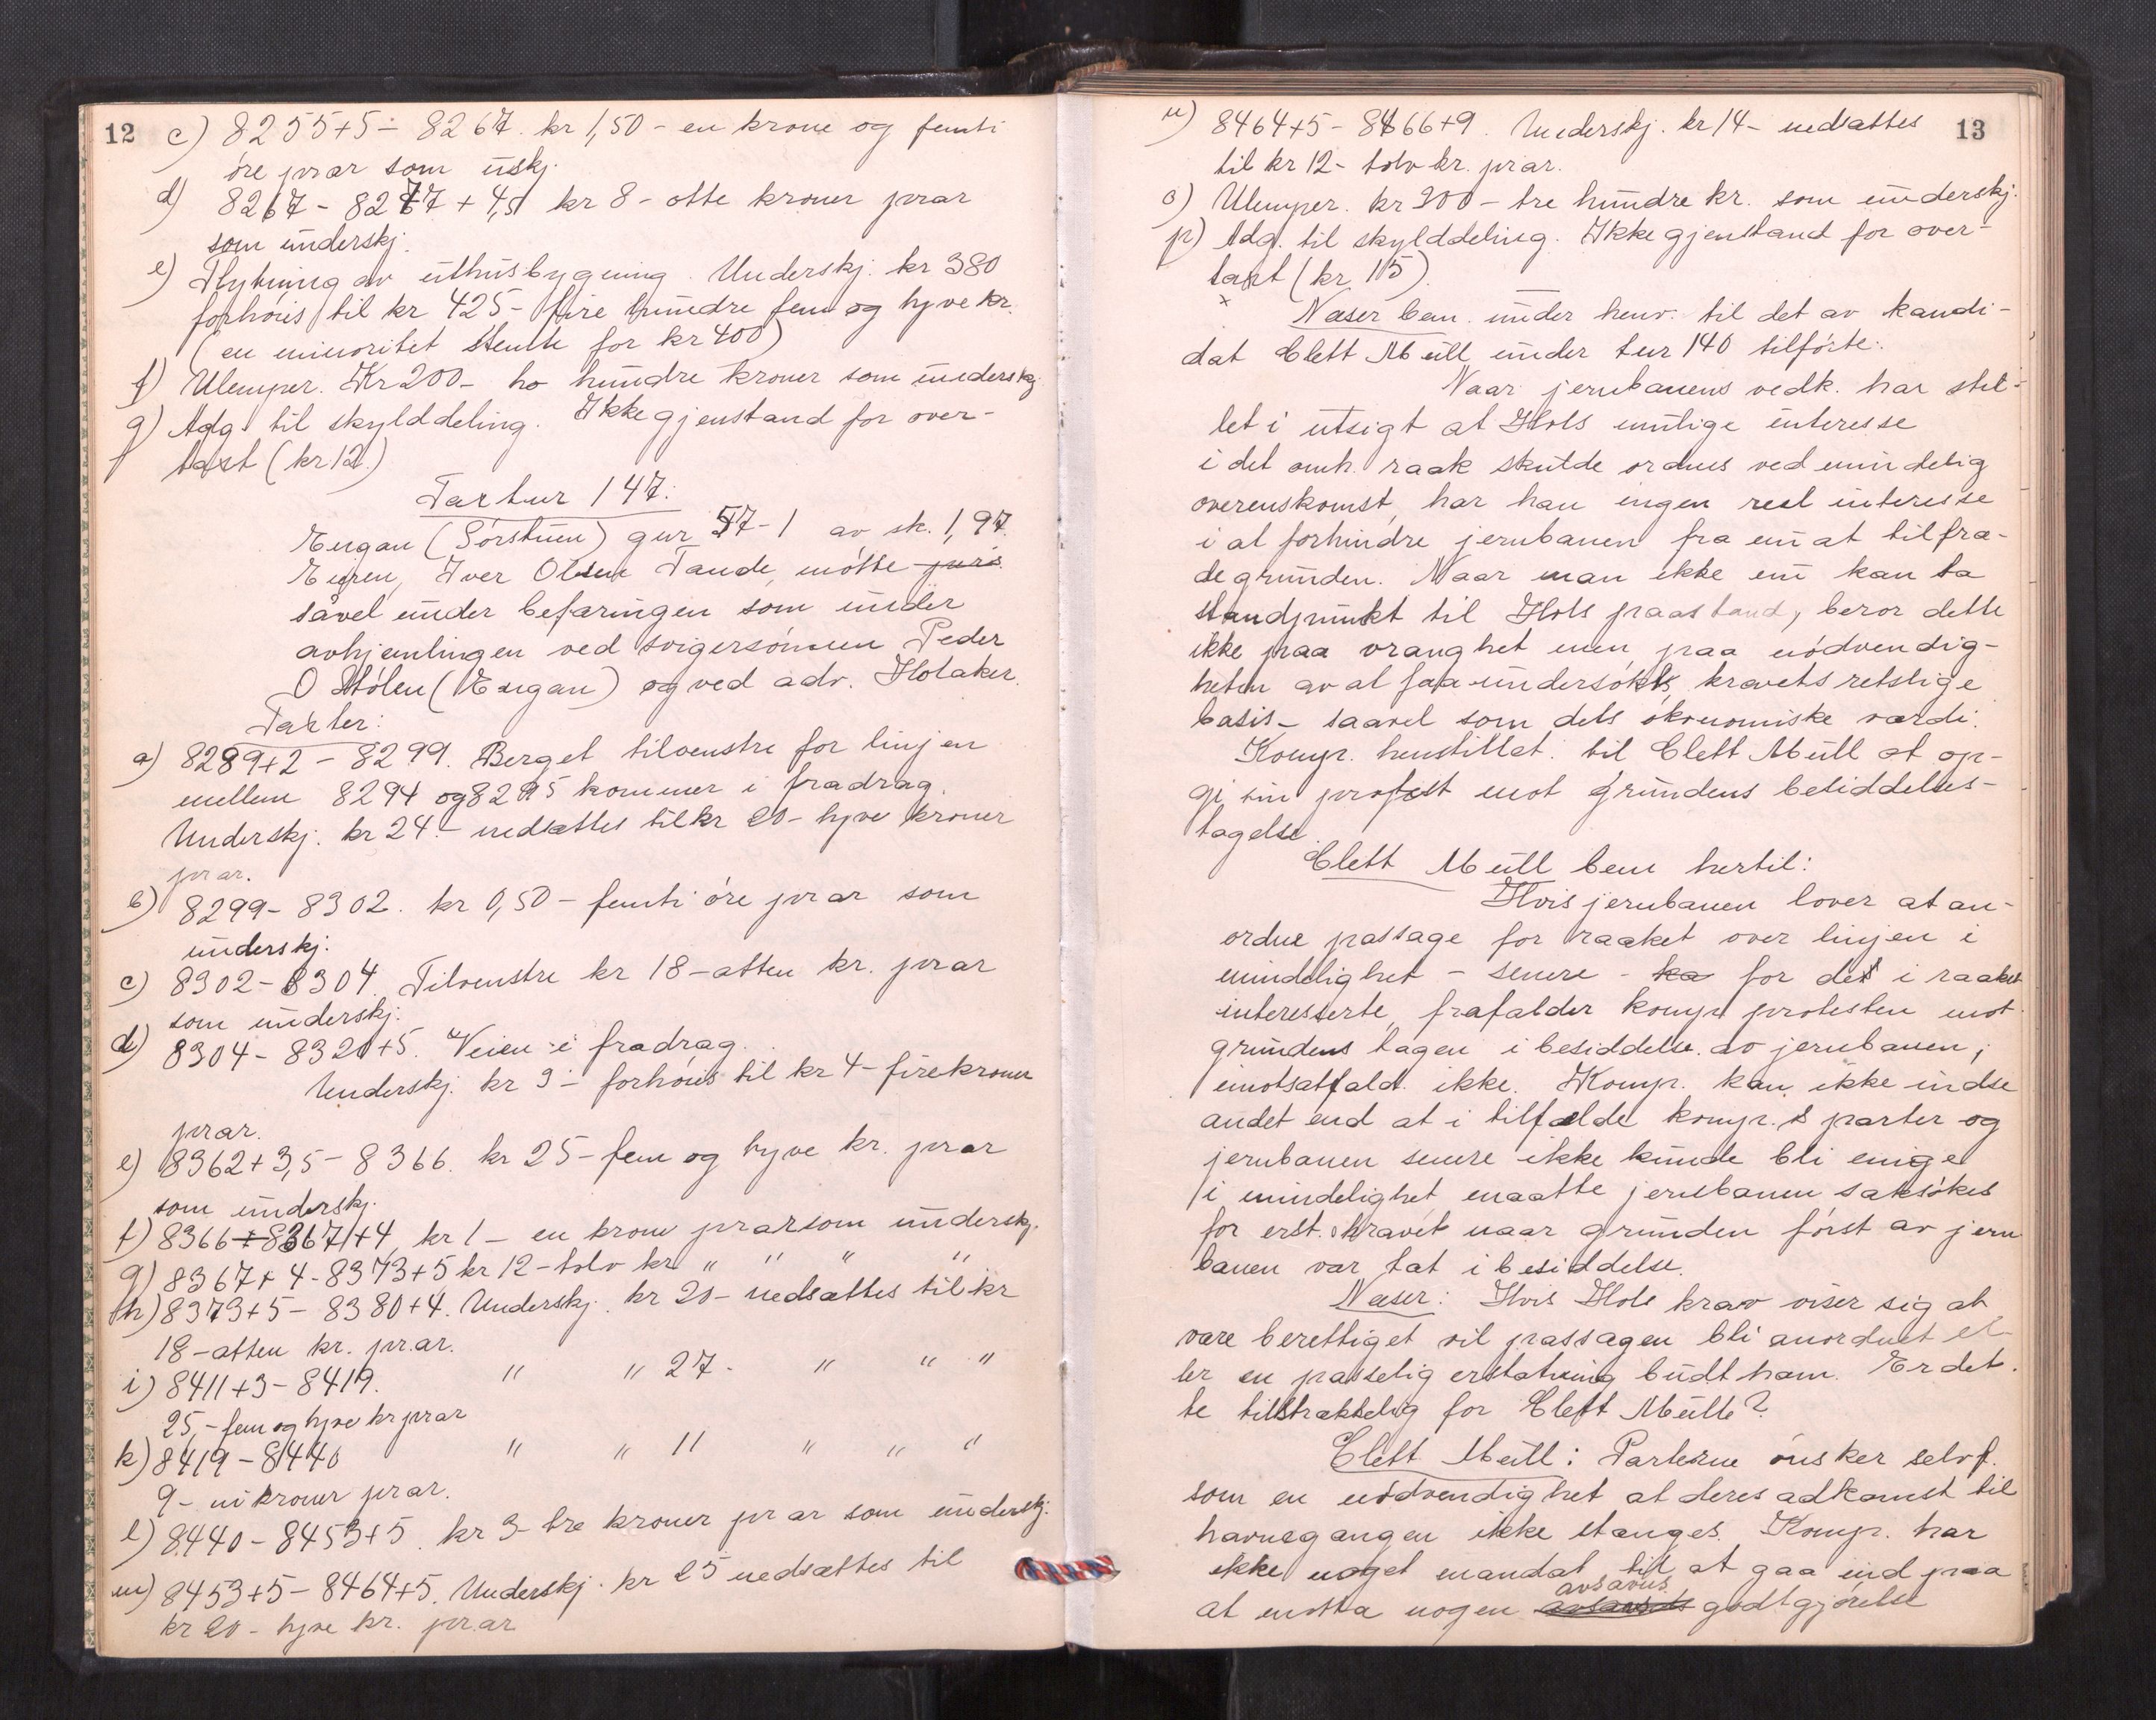 12
c) 8255+5 - 8267. kr 1,50 - en krone og femti
öre pr ar som uskj.
d) 8267 - 8277 + 4,5 kr 8 - otte kroner pr ar
som underskj.
e) Flytning av uthusbygning. Underskj. kr 380
forhöies til kr 425 - fire hundre fem og tyve kr.
(en minoritet stemte for kr 400)
f) Ulemper. Kr 200 - to hundre kroner som underskj.
g) Adg. til skylddeling. Ikke gjenstand for over-
taxt (kr 12.)
Taxtnr 147:
Engan (Sörstuen) gnr 57-1 av sk. 1,97.
Eieren, Iver Olsen Tande, mötte
såvel under befaringen som under
avhjemlingen ved svigersönnen Peder
O Stölen (Engan) og ved adv. Holaker.
Taxter:
a) 8289+2 - 8299. Berget tilvenstre for linjen
mellem 8294 og 8295 kommer i fradrag.
Underskj. kr 24.- nedsættes til kr 20 - tyve kroner
pr ar.
b) 8299 - 8302. kr 0,50 - femti öre pr ar som
underskj.
c) 8302 - 8304. Tilvenstre kr 18 - atten kr. pr ar
som underskj.
d) 8304 - 8320+5. Veien i fradrag.
Underskj. kr 3 - forhöies til kr 4 - fire kroner
pr ar.
e) 8362+3,5 - 8366. kr 25 - fem og tyve kr. pr ar
som underskj.
f) 8366 - 8367+4, kr 1 - en krone pr ar som underskj.
g) 8367+4 - 8373+5 kr 12 - tolv kr " " " "
h) 8373+5 - 8380+4. Underskj. kr 20 - nedsættes til kr
18 - atten kr. pr. ar.
i) 8411+3 - 8419. " " 27 - " " "
25, - fem og tyve kr pr ar
k) 8419 - 8440 " " 11 " " "
9 - ni kroner pr ar.
l) 8440 - 8453+5. kr 3 - tre kroner pr ar som underskj.
m) 8453+5 - 8464+5. Underskj. kr 25 nedsættes til
kr 20 - tyve kr. pr. ar
13
n) 8464+5 - 8466+9. Underskj. kr 14 - nedsættes
til kr 12 - tolv kr. pr ar.
o) Ulemper. kr 300 - tre hundre kr. som underskj.
p) Adg. til skylddeling. Ikke gjenstand for over-
taxt (kr 15).
x
Næser bem. under henv. til det av kandi-
dat Clett Müll under tnr 140 tilförte:
Naar jernbanens vedk. har stil-
let i utsigt at Hols mulige interesse
i det omh. raak skulde ordnes ved mindelig
overenskomst, har han ingen reel interesse
i at forhindre jernbanen fra nu at tiltræ-
de grunden. Naar man ikke nu kan ta
standpunkt til Hols paastand, beror dette
ikke paa vranghet men paa nödvendig-
heten av at faa undersökt kravets retslige
basis - saavel som dets ökonomiske værdi.
Komp. henstillet til Clett Müll at op-
gi sin protest mot grundens besiddelses-
tagelse.
Clett Müll bem hertil:
Hvis jernbanen lover at an-
ordne passage for raaket over linjen i
mindelighet - senere - ka for det i raaket
interesserte, frafalder komp protesten mot
grundens tagen i besiddelse av jernbanen;
imotsatfald ikke. Komp. kan ikke indse
andet end at i tilfælde komp.s parter og
jernbanen senere ikke kunde bli enige
i mindelighet, maatte jernbanen saksökes
for erst. kravet naar grunden först av jern
banen var tat i besiddelse.
Næser: Hvis Hols krav viser sig at
være berettiget vil passagen bli anordnet el-
ler en passelig erstatning budt ham. Er det-
te tilstrækkelig for Clett Müll?
Clett Müll: Parterne önsker selvf.
som en nödvendighet at deres adkomst til
havnegangen ikke stanges. Komp. har
ikke noget mandat til at gaa ind paa
at motta nogen avsavns godtgjörelse